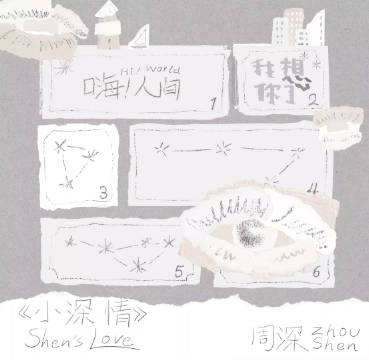 Hi! World
嗨!人间
1
我想
你了
2
3
4
5
6
《小深情》
Shen's Love
周深 Zhou
Shen